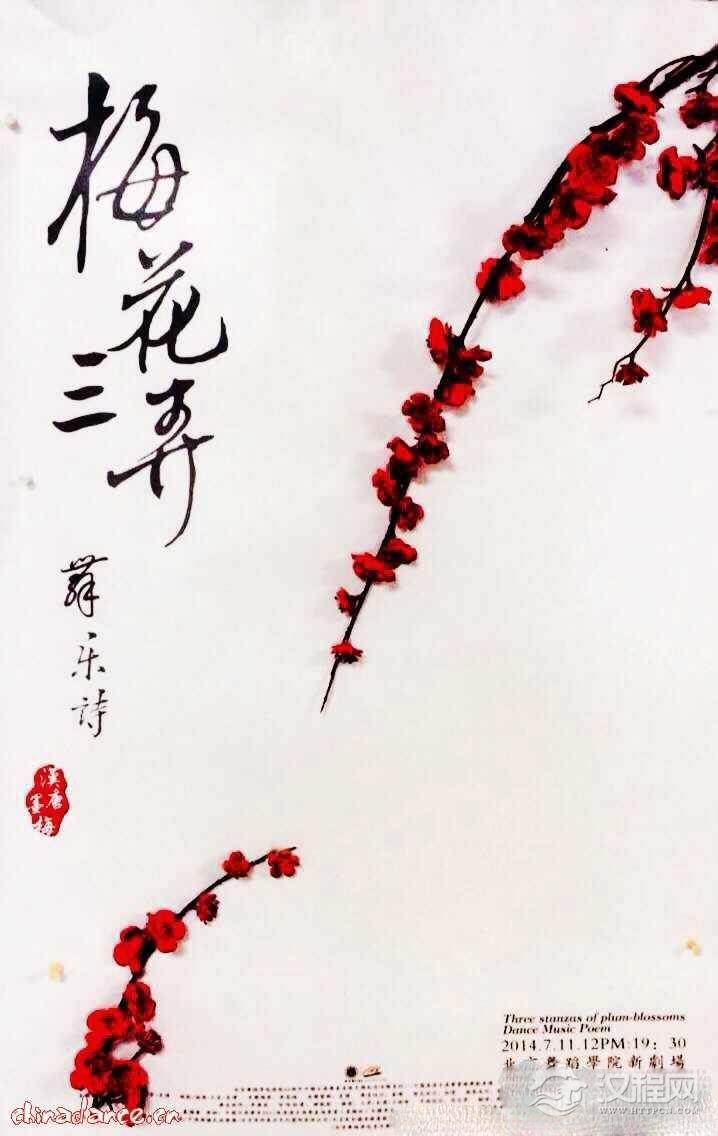 梅花
三弄
舞乐詩
漢唐
墨梅
Three stanzas of plum-blossoms
Dance Music Poem
2014.7.11.12PM:19：30
北京舞蹈學院新劇場
chinadance.cn
汉程网
WWW.HTTPCN.COM